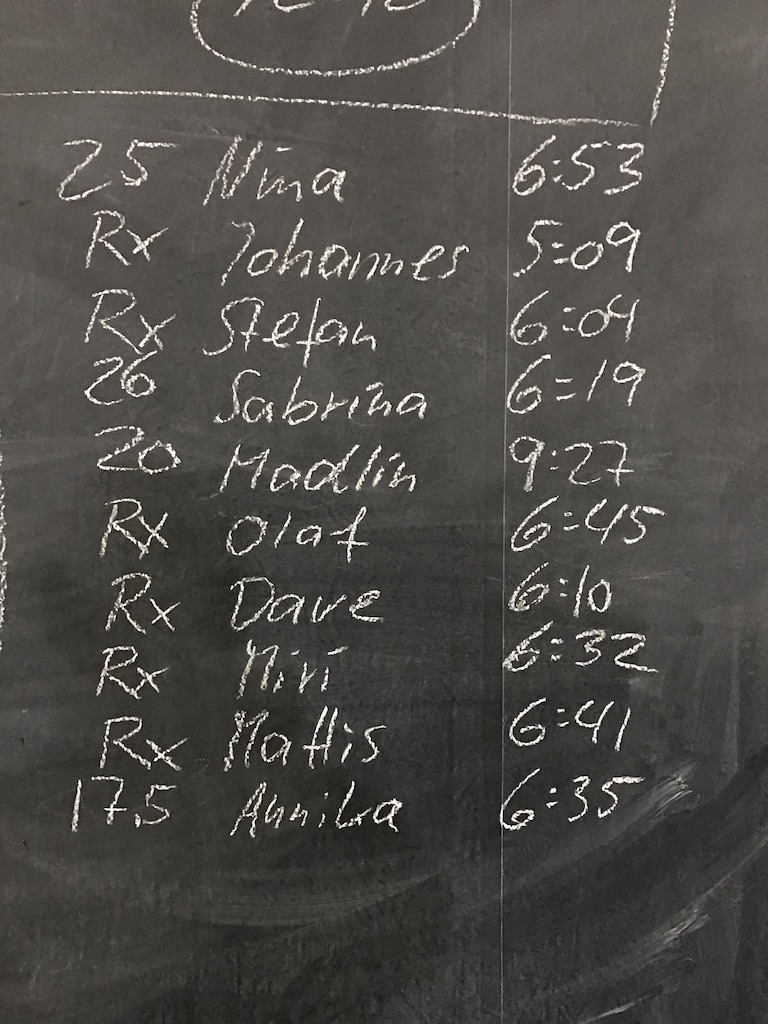 25 Nina 6:53
Rx Johannes 5:09
Rx Stefan 6:04
26 Sabrina 6:19
20 Madlin 9:27
Rx Olaf 6:45
Rx Dave 6:10
Rx Miri 6:32
Rx Mattis 6:41
17,5 Annika 6:35